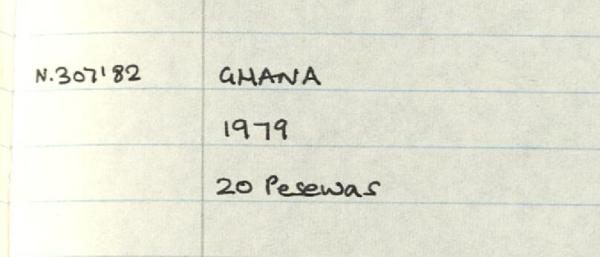 N.307'82 GHANA
1979
20 Pesewas